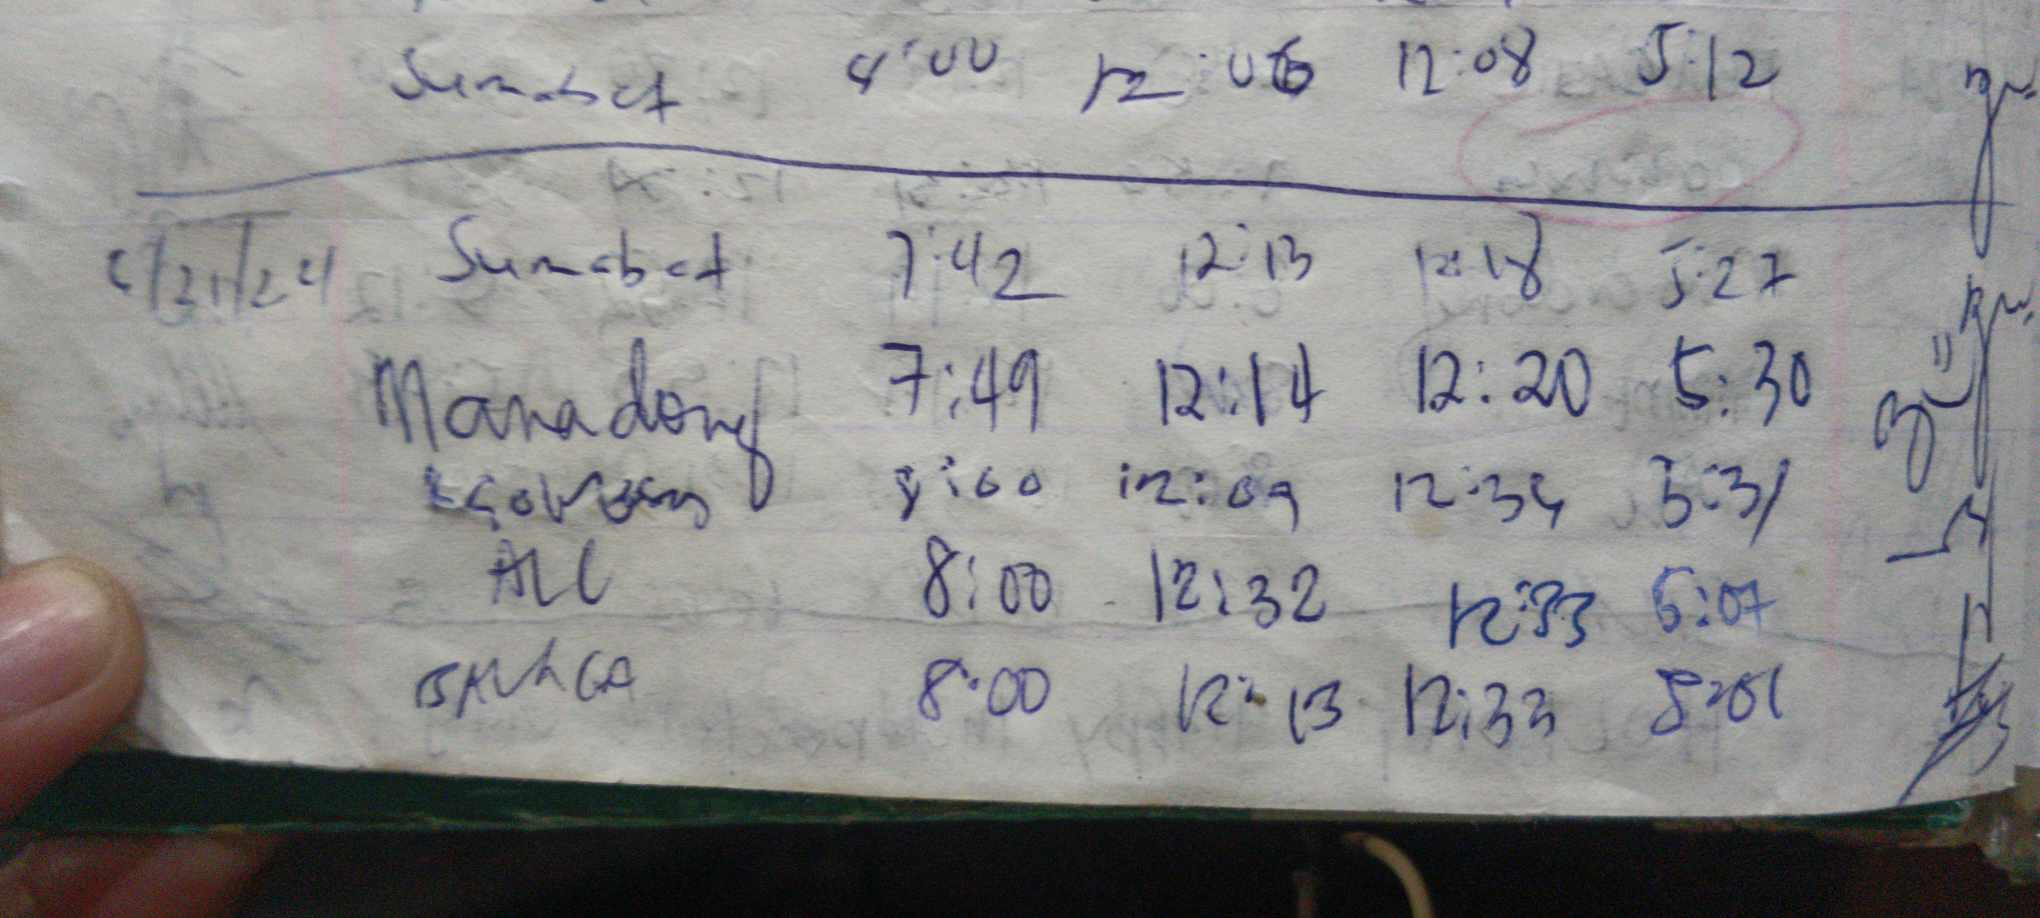 Sumabat 8:00 12:06 12:08 5:12
6/21/24 Sumabat 7:42 12:13 12:18 5:27
Manadong 7:49 12:14 12:20 5:30
8:00 12:09 12:34 5:31
ALC 8:00 12:32 12:33 5:07
8:00 12:13 12:33 5:01